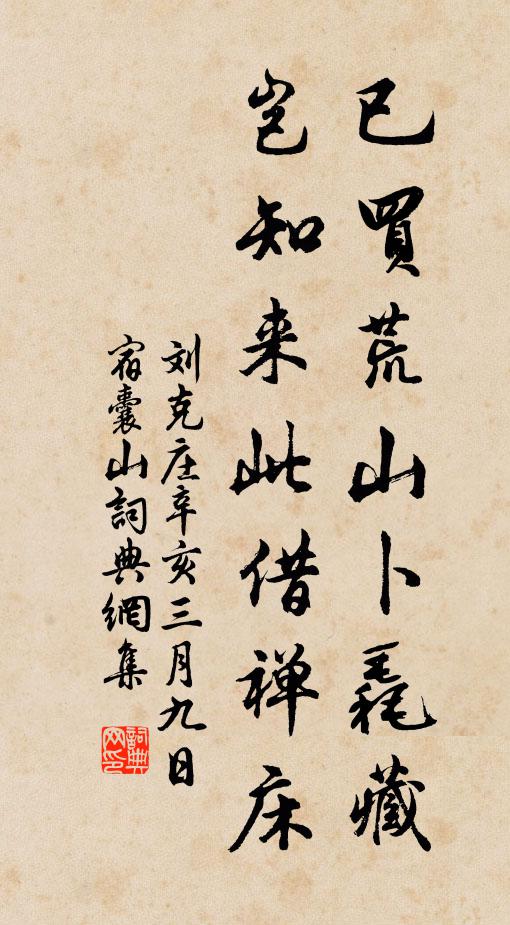 已買荒山卜毳藏
岂知来此借禅床
刘克庄辛亥三月九日
宿囊山詞典網集
詞典网印